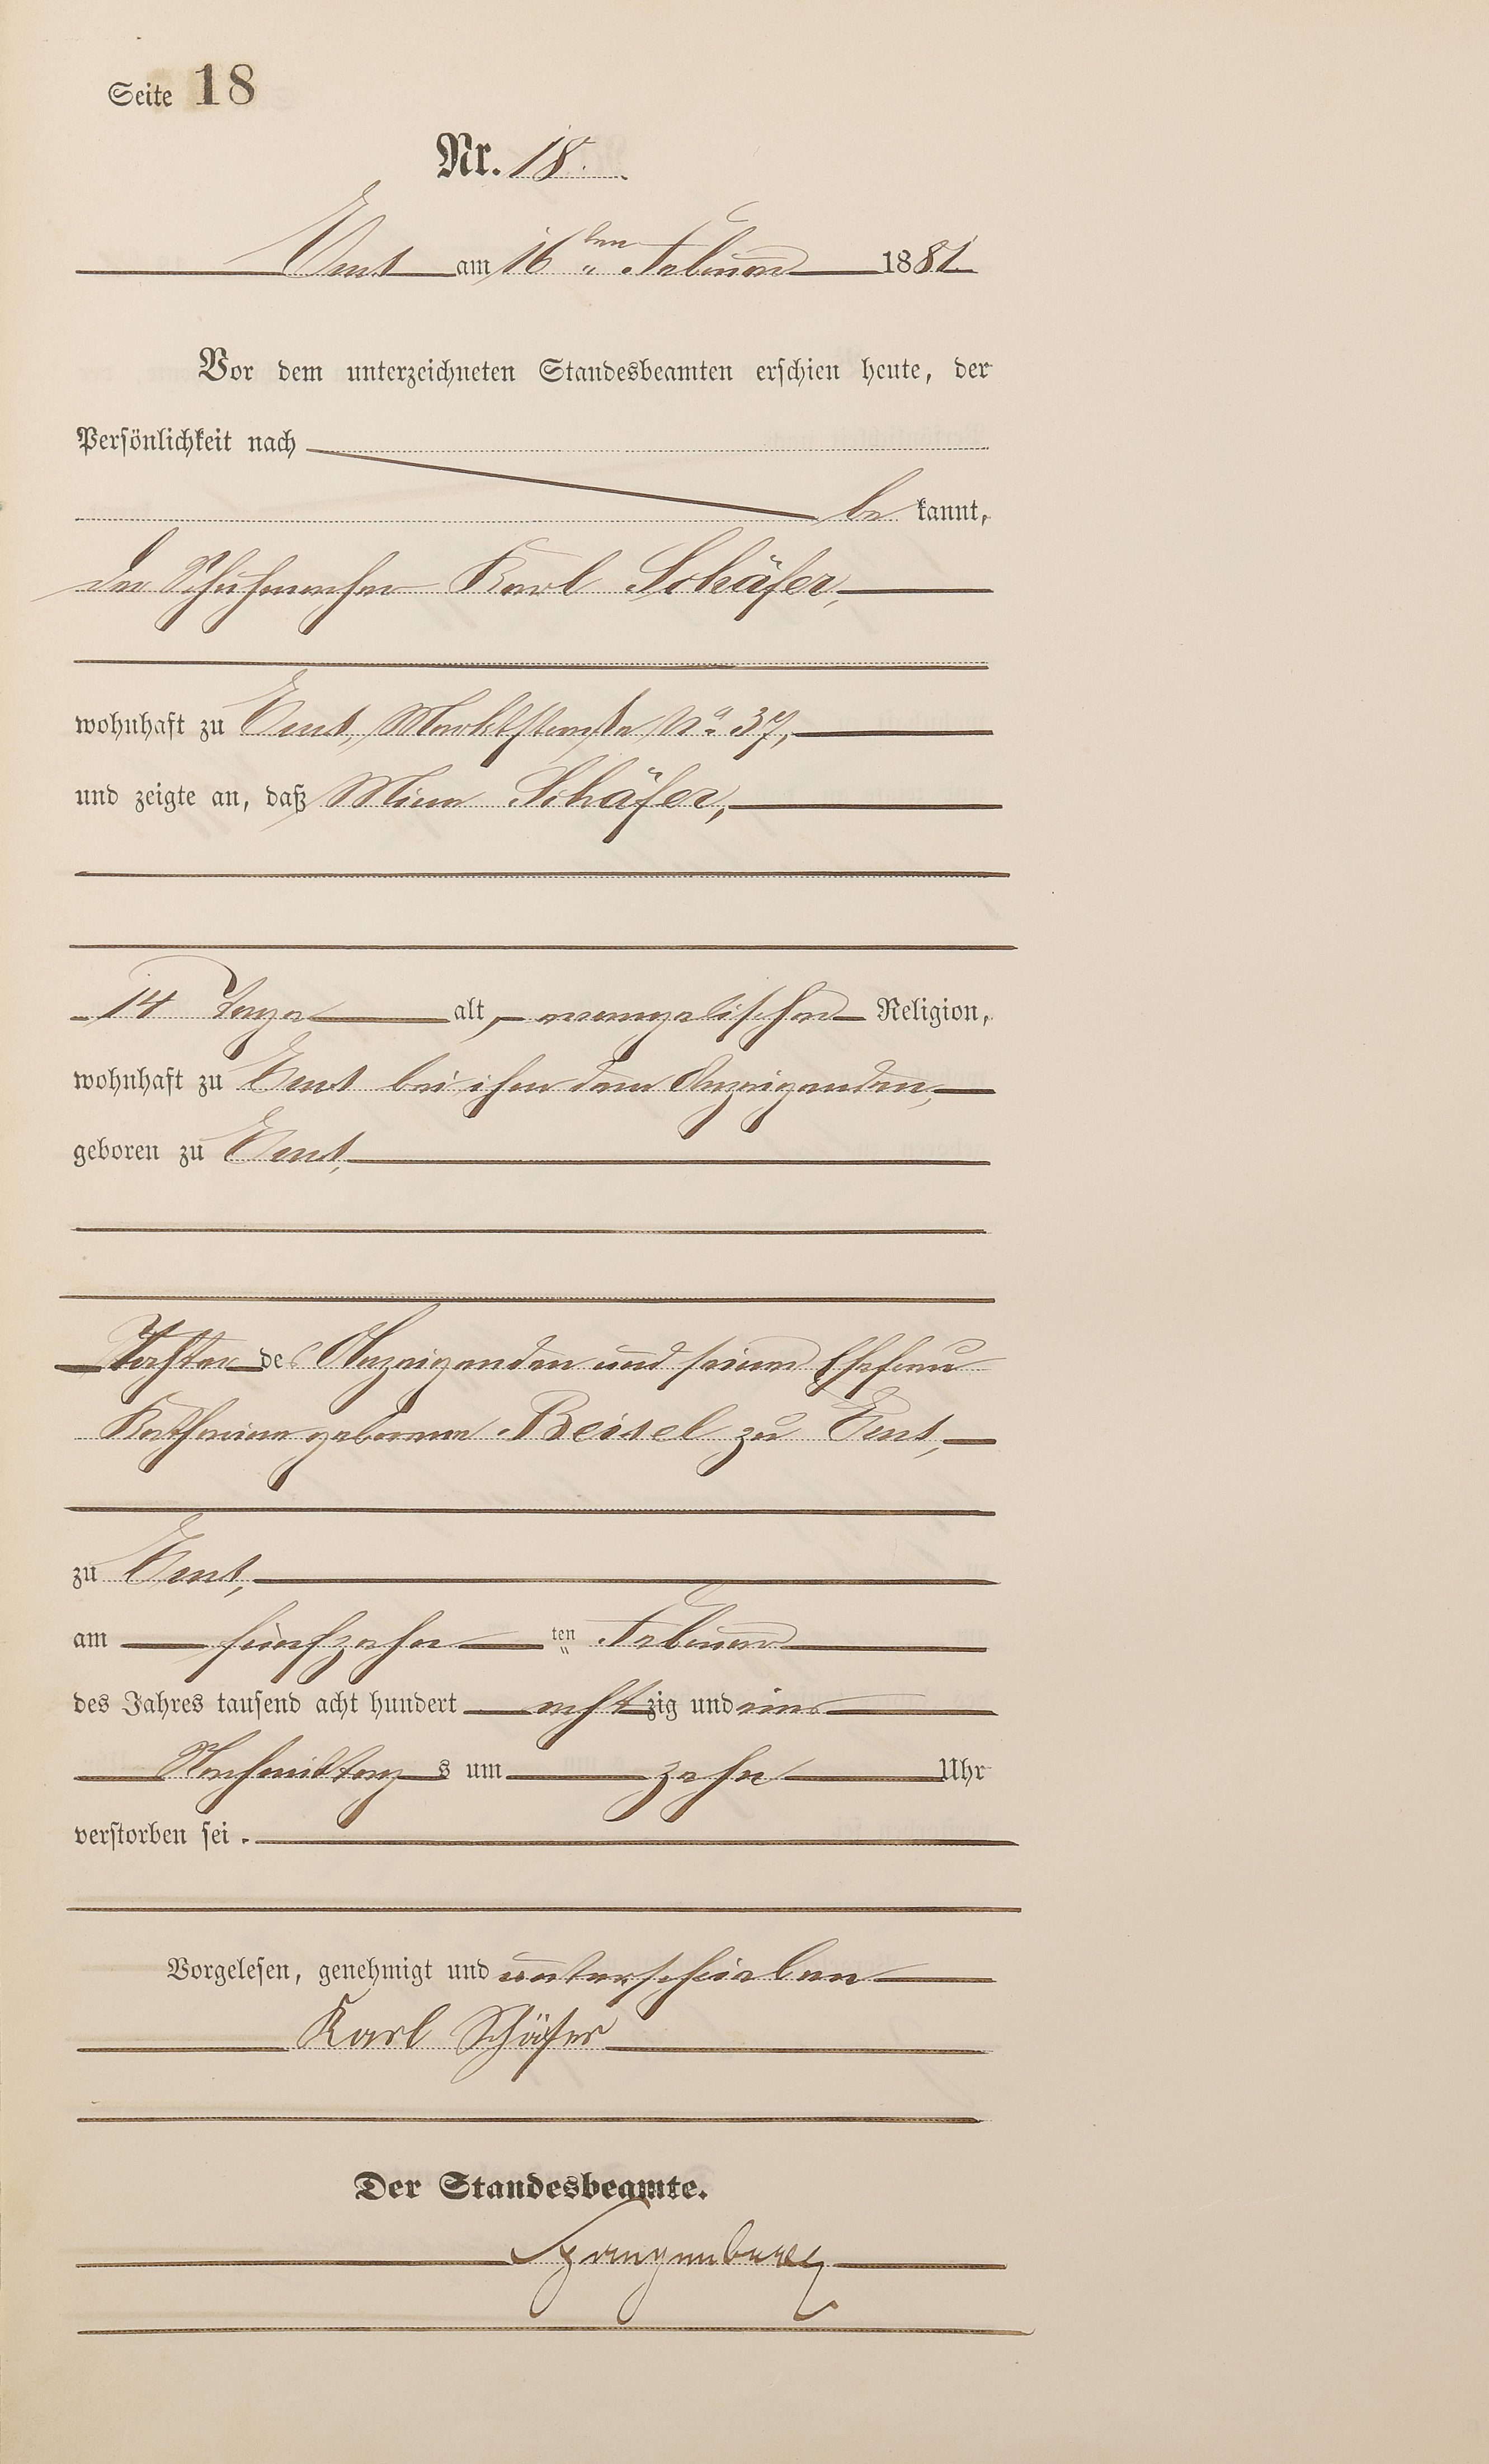 Seite 18
Nr. 18.
Ems am 16ten Februar 1881
Vor dem unterzeichneten Standesbeamten erschien heute, der
Persönlichkeit nach
be kannt,
der Schuhmacher Karl Schäfer,
wohnhaft zu Ems, Marktstraße No 37,
und zeigte an, daß Mina Schäfer,
14 Tage alt, evangelischer Religion,
wohnhaft zu Ems bei ihm dem Anzeigenden,
geboren zu Ems,
Tochter des Anzeigenden und seiner Ehefrau
Katharina geborene Beisel zu Ems,
zu Ems,
am fünfzehn ten Februar
des Jahres tausend acht hundert acht zig und eins
Nachmittag s um zehn Uhr
verstorben sei.
Vorgelesen, genehmigt und unterschrieben
Karl Schäfer
Der Standesbeamte.
Spangenberg